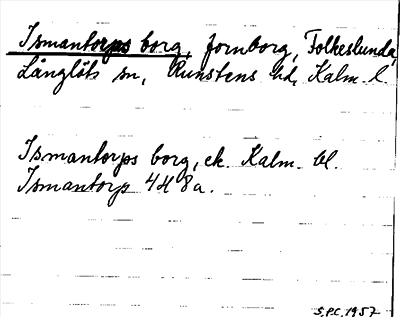 Ismantorps borg, fornborg, Folkeslunda,
Långlöts sn, Runstens hd, Kalm. l.
Ismantorps borg, ek. Kalm. bl.
Ismantorp 4H 8a.
S.P.C. 1957